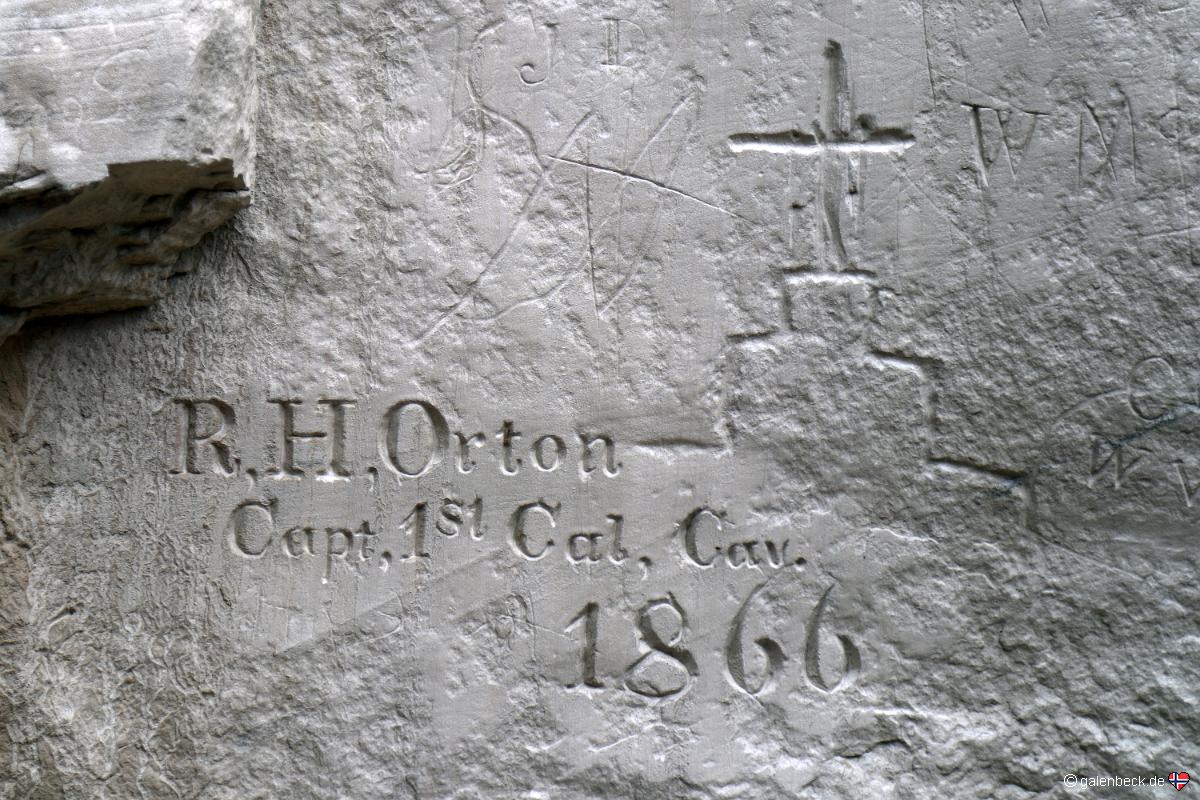 J D
W M
R, H, Orton
Capt, 1st Cal, Cav.
1866
© galenbeck.de